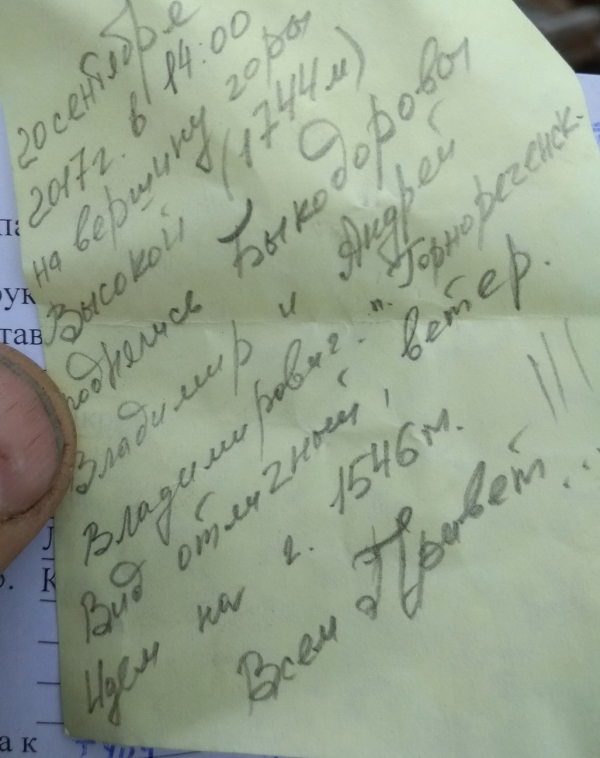 20 сентября
2017г. в 14:00
на вершину горы
Высокой (1744м)
поднелись Быкодоровы
Владимир и Андрей
Владимирович. п. Горнореченск.
Вид отличный, ветер.
Идем на г. 1546м.
Всем Привет...!!!
рук
став
К
а к